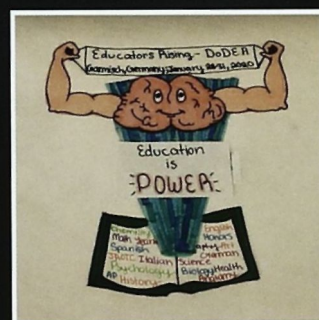 Educators Rising - DoDEA
Garmisch, Germany, January 2020
Education
is
POWER
Chemistry
Math
Spanish
JROTC Italian
Psychology
AP
History
English
Honors
Art
German
Science
Biology Health
Anatomy